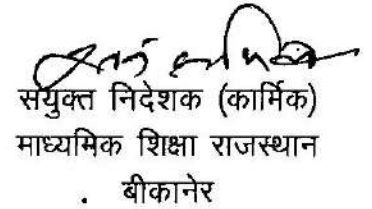 संयुक्त निदेशक (कार्मिक)
माध्यमिक शिक्षा राजस्थान
. बीकानेर